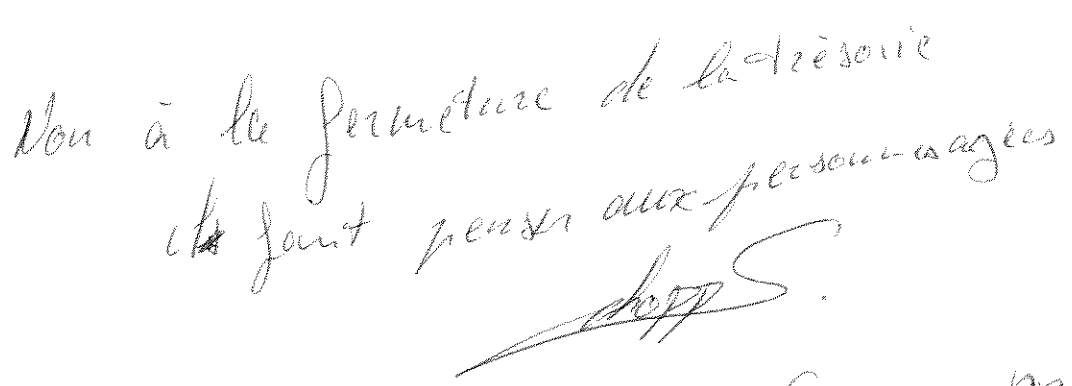 Non à la fermeture de la trésorie
il faut penser aux personnes agées